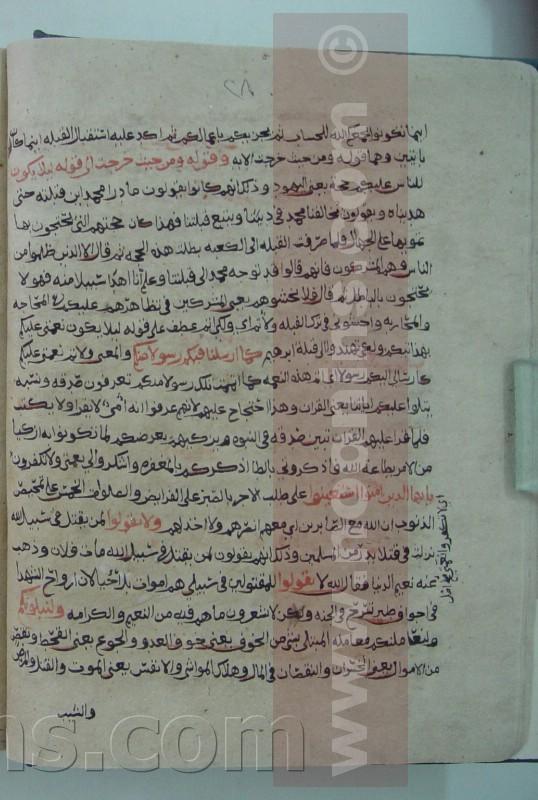 ٢٨
اينما تكونوا يجمعكم الله للحساب ثم يجزيكم باعمالكم ثم اكد عليه استقبال القبله اينما كان
بايتين وهما قوله ومن حيث خرجت الايه وقوله ومن حيث خرجت الى قوله لئلا يكون
للناس عليكم حجه يعنى اليهود وذلك انهم كانوا يقولون ما درا محمد اين قبلته حتى
هديناه ويقولون يخالفنا محمد فى ديننا ويتبع قبلتنا فهذا كان حجتهم التى يحتجون بها
تمويها على الجهال فلما صرفت القبله الى الكعبه بطلت هذه الحجه ثم قال الا الذين ظلموا من
الناس وهم المشركون فانهم قالوا قد توجه محمد الى قبلتنا وعلم انا اهدا سبيلا منه فهولا
يحتجون بالباطل ثم قال فلا تخشوهم يعنى المشركين فى تظاهرهم عليكم فى المحاجه
والمحاربه واخشونى فى ترك القبله ولاتم عطف على قوله لئلا يكون نعمتى عليكم
بهدايتى اياكم ولعلكم تهتدون الى قبلة ابرهيم كما ارسلنا فيكم رسولا منكم والمعنى ولاتم نعمتى عليكم
كارسالى اليكم رسولا اى اتم هذه النعمه كما اتممت تلك رسولا منكم تعرفون صدقه ونسبه
يتلوا عليكم اياتنا يعنى القران وهذا احتجاج عليهم لانهم عرفوا انه امى لا يقرا ولا يكتب
فلما قرا عليهم القران تبين صدقه فى النبوه ويزكيكم يعرضكم لما تكونوا به ازكيا
من الامر بطاعة الله فاذكرونى بالطاعه اذكركم بالمغفره واشكروا لى نعمتى ولا تكفرون
يايها الذين امنوا استعينوا على طلب الاخره بالصبر على الفرايض وبالصلوات الخمس على تمحيص
الذنوب ان الله مع الصابرين اى معهم انصرهم ولا اخذلهم ولا تقولوا لمن يقتل فى سبيل الله
نزلت فى قتلا بدر من المسلمين وذلك انهم يقولون لمن يقتل فى سبيل الله مات فلان وذهب
عنه نعيم الدنيا فقال الله لا تقولوا للمقتولين فى سبيلى هم اموات بل احيا لان ارواح الشهدا
فى اجواف طير تسرح فى الجنه ولكن لا تشعرون ما هم فيه من النعيم والكرامه ولنبلونكم
ولنعاملنكم معاملة المبتلى بشى من الخوف يعنى خوف العدو والجوع يعنى القحط ونقص
من الاموال يعنى الخسران والنقصان فى المال وهلاك المواشى والانفس يعنى الموت والقتل والمرض
والشيب
www.moqatins.com ©
ns.com